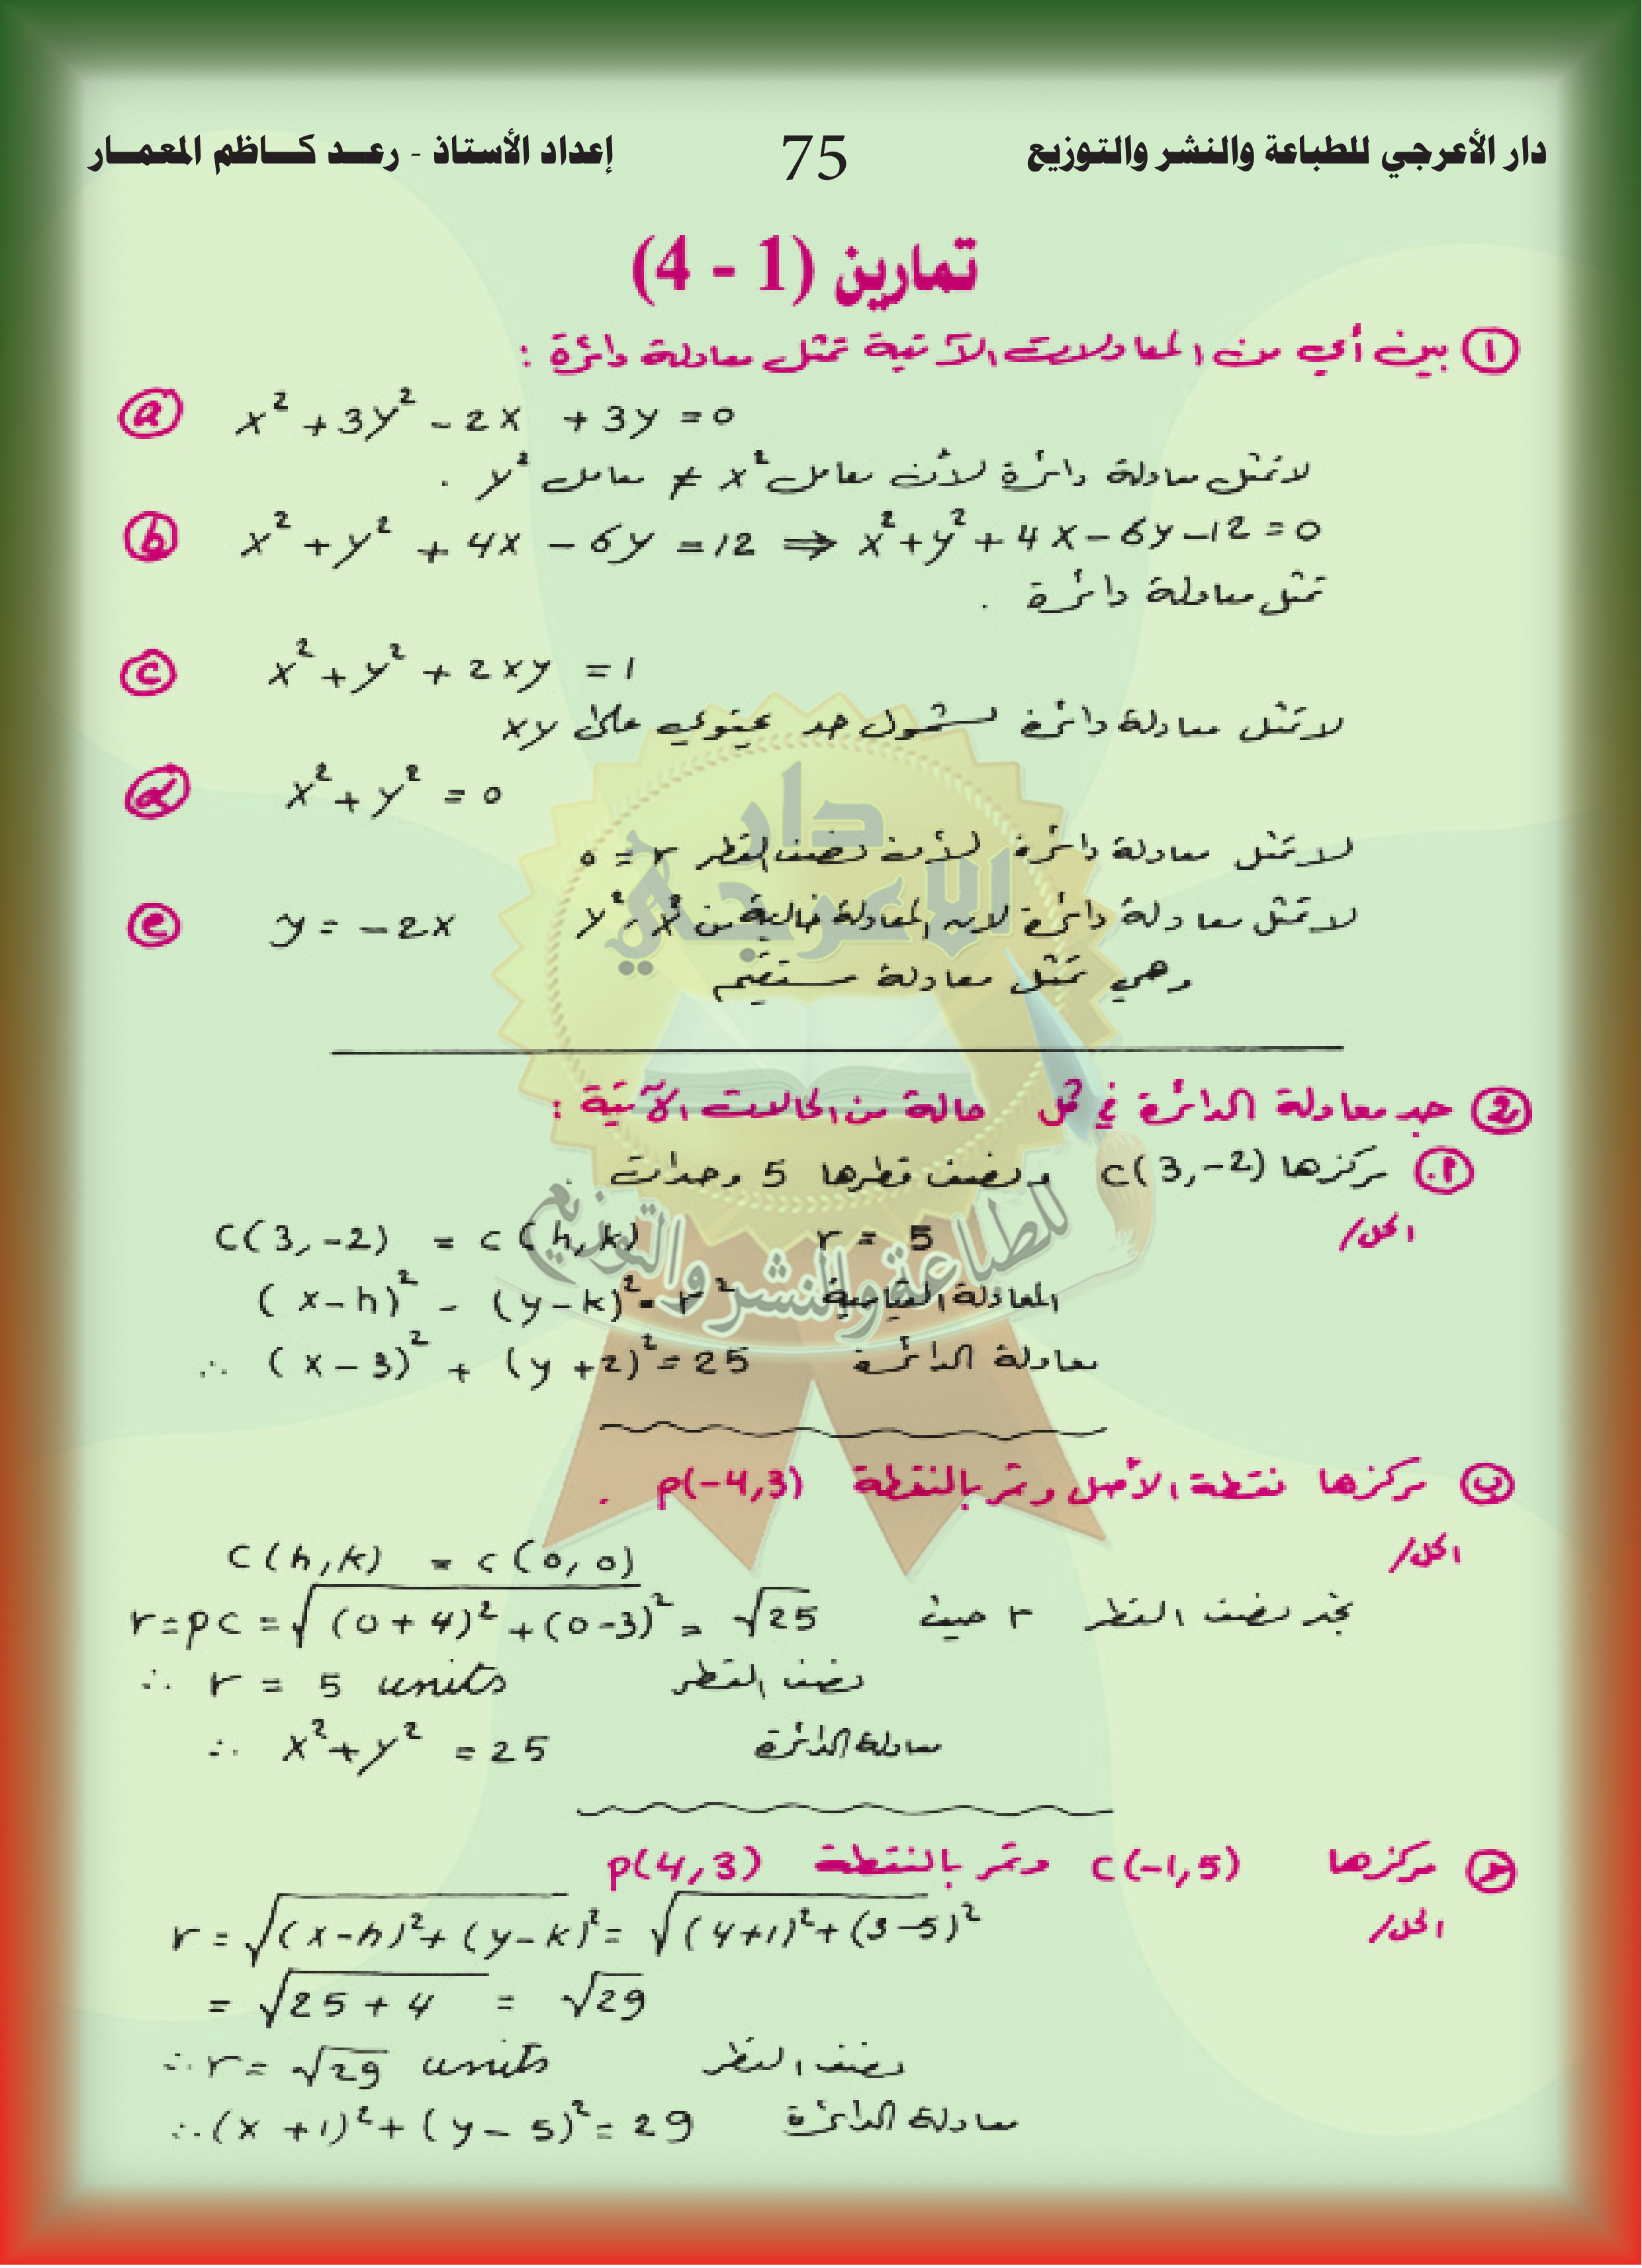 دار الأعرجي للطباعة والنشر والتوزيع 75 إعداد الأستاذ - رعـد كـاظم المعمـار
تمارين (1 - 4)
① بين أي من المعادلات الآتية تمثل معادلة دائرة :
ⓐ x² + 3y² - 2x + 3y = 0
لا تمثل معادلة دائرة لأن معامل x² ≠ معامل y² .
ⓑ x² + y² + 4x - 6y = 12 ⇒ x² + y² + 4x - 6y - 12 = 0
تمثل معادلة دائرة .
ⓒ x² + y² + 2xy = 1
لا تمثل معادلة دائرة لشمول حد يحتوي على xy
ⓓ x² + y² = 0
لا تمثل معادلة دائرة لأن نصف القطر r = 0
ⓔ y = -2x لا تمثل معادلة دائرة لان المعادلة خالية من x² ، y²
وهي تمثل معادلة مستقيم
② جد معادلة الدائرة في كل حالة من الحالات الآتية :
أ. مركزها C(3,-2) ونصف قطرها 5 وحدات .
الحل/
C(3,-2) = C(h,k) r = 5
(x-h)² - (y-k)² = r² المعادلة القياسية
∴ (x-3)² + (y+2)² = 25 معادلة الدائرة
ب مركزها نقطة الأصل وتمر بالنقطة p(-4,3) .
الحل/
C(h,k) = C(0,0)
r = pc = √(0+4)² + (0-3)² = √25 نجد نصف القطر r حيث
∴ r = 5 units نصف القطر
∴ x² + y² = 25 معادلة الدائرة
جـ مركزها C(-1,5) وتمر بالنقطة p(4,3)
الحل/
r = √(x-h)² + (y-k)² = √(4+1)² + (3-5)²
= √25 + 4 = √29
∴ r = √29 units نصف القطر
∴ (x+1)² + (y-5)² = 29 معادلة الدائرة
دار
الاعرجي
للطباعة والنشر والتوزيع